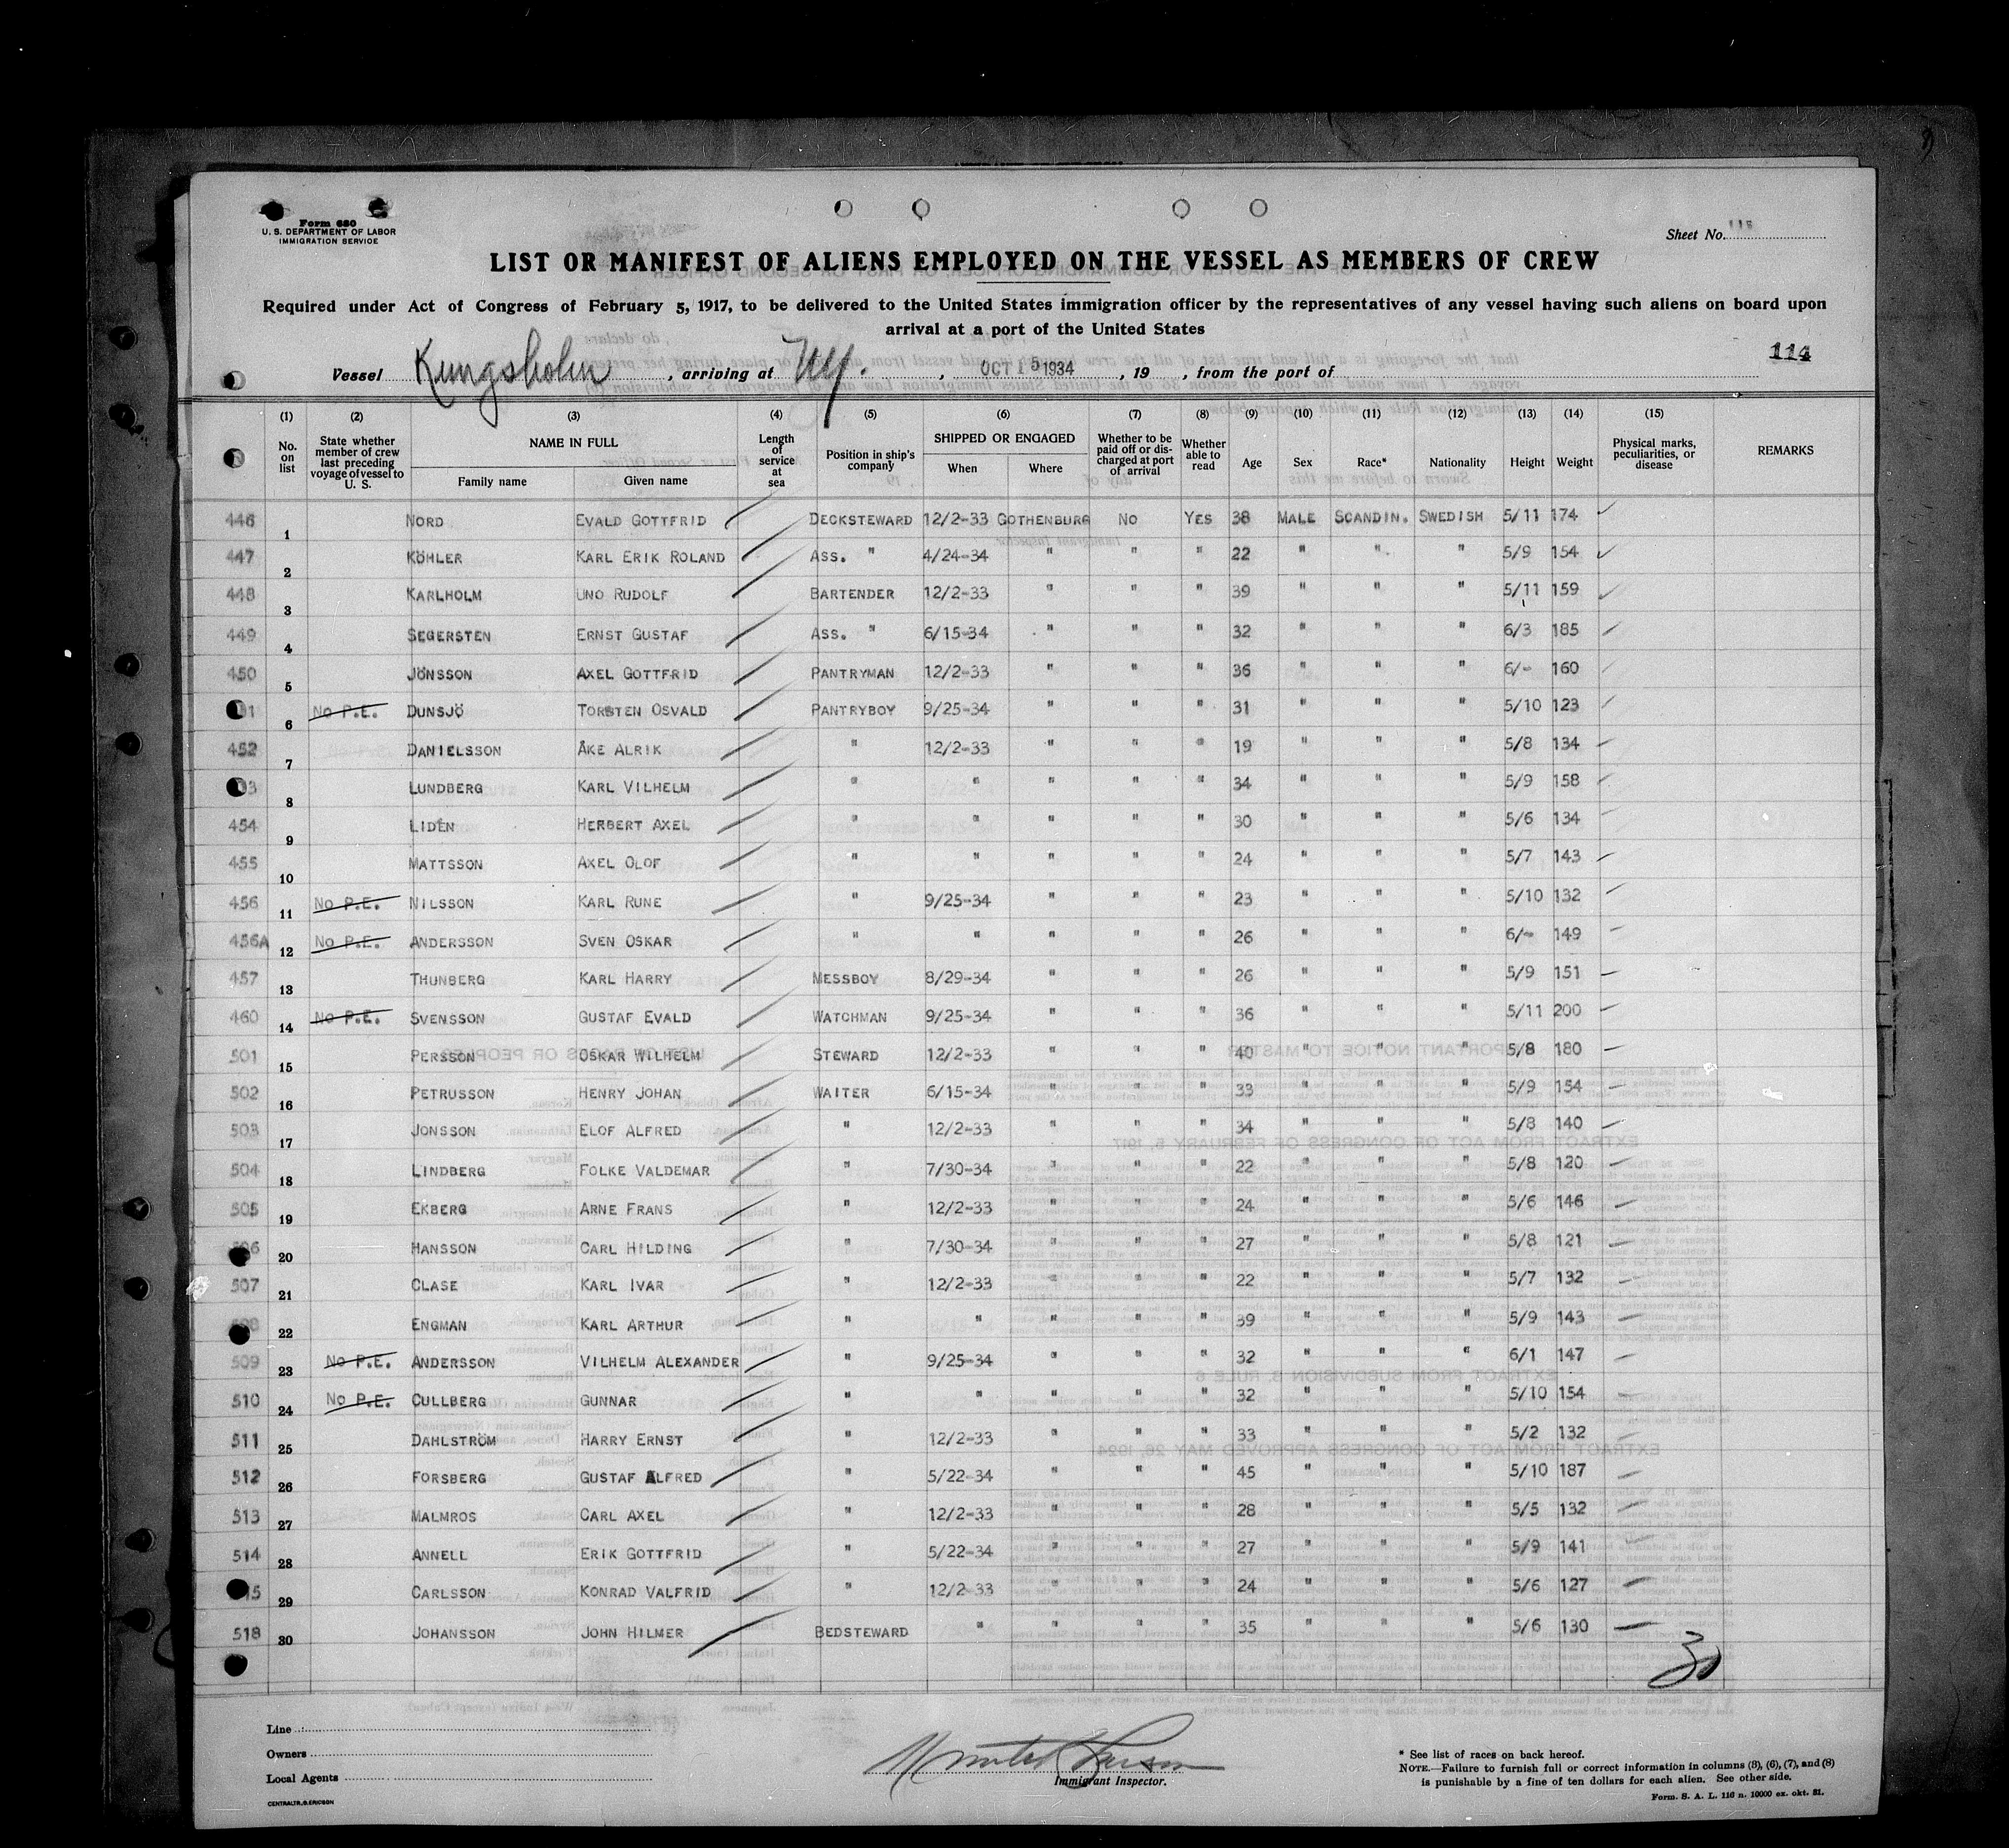 Form 680
U. S. DEPARTMENT OF LABOR
IMMIGRATION SERVICE
Sheet No.
LIST OR MANIFEST OF ALIENS EMPLOYED ON THE VESSEL AS MEMBERS OF CREW
Required under Act of Congress of February 5, 1917, to be delivered to the United States immigration officer by the representatives of any vessel having such aliens on board upon
arrival at a port of the United States
114
Vessel Kungsholm, arriving at NY., OCT 15 1934, 19 , from the port of
(1) (2) (3) (4) (5) (6) (7) (8) (9) (10) (11) (12) (13) (14) (15)
No. on list State whether member of crew last preceding voyage of vessel to U. S. NAME IN FULL Family name Given name Length of service at sea Position in ship's company SHIPPED OR ENGAGED When Where Whether to be paid off or discharged at port of arrival Whether able to read Age Sex Race* Nationality Height Weight Physical marks, peculiarities, or disease REMARKS
446 1 NORD EVALD GOTTFRID DECKSTEWARD 12/2-33 GOTHENBURG NO YES 38 MALE SCANDIN. SWEDISH 5/11 174
447 2 KÖHLER KARL ERIK ROLAND ASS. " 4/24-34 " " " 22 " " " 5/9 154
448 3 KARLHOLM UNO RUDOLF BARTENDER 12/2-33 " " " 39 " " " 5/11 159
449 4 SEGERSTEN ERNST GUSTAF ASS. " 6/15-34 " " " 32 " " " 6/3 185
450 5 JÖNSSON AXEL GOTTFRID PANTRYMAN 12/2-33 " " " 36 " " " 6/- 160
6 No P.E. DUNSJÖ TORSTEN OSVALD PANTRYBOY 9/25-34 " " " 31 " " " 5/10 123
452 7 DANIELSSON ÅKE ALRIK " 12/2-33 " " " 19 " " " 5/8 134
8 LUNDBERG KARL VILHELM " " " " " 34 " " " 5/9 158
454 9 LIDÉN HERBERT AXEL " " " " " 30 " " " 5/6 134
455 10 MATTSSON AXEL OLOF " " " " " 24 " " " 5/7 143
456 11 No P.E. NILSSON KARL RUNE " 9/25-34 " " " 23 " " " 5/10 132
456A 12 No P.E. ANDERSSON SVEN OSKAR " " " " " 26 " " " 6/- 149
457 13 THUNBERG KARL HARRY MESSBOY 8/29-34 " " " 26 " " " 5/9 151
460 14 No P.E. SVENSSON GUSTAF EVALD WATCHMAN 9/25-34 " " " 36 " " " 5/11 200
501 15 PERSSON OSKAR WILHELM STEWARD 12/2-33 " " " 40 " " " 5/8 180
502 16 PETRUSSON HENRY JOHAN WAITER 6/15-34 " " " 33 " " " 5/9 154
503 17 JONSSON ELOF ALFRED " 12/2-33 " " " 34 " " " 5/8 140
504 18 LINDBERG FOLKE VALDEMAR " 7/30-34 " " " 22 " " " 5/8 120
505 19 EKBERG ARNE FRANS " 12/2-33 " " " 24 " " " 5/6 146
20 HANSSON CARL HILDING " 7/30-34 " " " 27 " " " 5/8 121
507 21 CLASE KARL IVAR " 12/2-33 " " " 22 " " " 5/7 132
22 ENGMAN KARL ARTHUR " " " " " 39 " " " 5/9 143
509 23 No P.E. ANDERSSON VILHELM ALEXANDER " 9/25-34 " " " 32 " " " 6/1 147
510 24 No P.E. CULLBERG GUNNAR " " " " " 32 " " " 5/10 154
511 25 DAHLSTRÖM HARRY ERNST " 12/2-33 " " " 33 " " " 5/2 132
512 26 FORSBERG GUSTAF ALFRED " 5/22-34 " " " 45 " " " 5/10 187
513 27 MALMROS CARL AXEL " 12/2-33 " " " 28 " " " 5/5 132
514 28 ANNELL ERIK GOTTFRID " 5/22-34 " " " 27 " " " 5/9 141
29 CARLSSON KONRAD VALFRID " 12/2-33 " " " 24 " " " 5/6 127
518 30 JOHANSSON JOHN HILMER BEDSTEWARD " " " " 35 " " " 5/6 130
30
Line
Owners
Local Agents
CENTRALTR. G. ERICSON
Immigrant Inspector.
* See list of races on back hereof.
NOTE.—Failure to furnish full or correct information in columns (3), (6), (7), and (8)
is punishable by a fine of ten dollars for each alien. See other side.
Form. S. A. L. 116 n. 10000 ex. okt. 31.